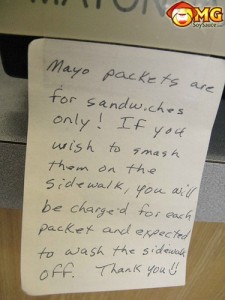 OMG
SoySauce.net
Mayo packets are
for sandwiches
only! If you
wish to smash
them on the
sidewalk, you will
be charged for each
packet and expected
to wash the sidewalk
off. Thank you